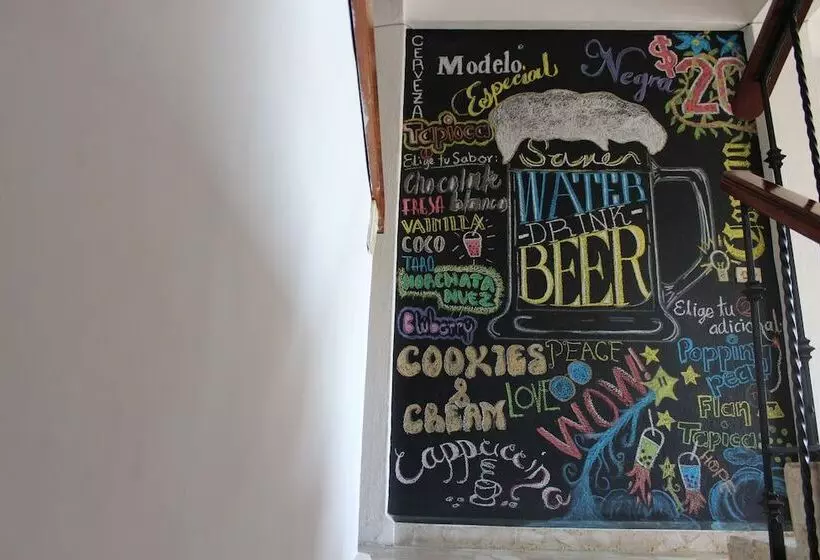 CERVEZA
Modelo
Especial
Negra
$20
Tapioca
Elige tu Sabor:
Chocolate
blanco
FRESA
VAINILLA
COCO
TARO
HORCHATA
NUEZ
Bluberry
COOKIES
&
CREAM
Cappuccino
Save
WATER
-DRINK-
BEER
PEACE
LOVE
WOW!
Elige tu
adicional:
Popping
Flan
Tapioca